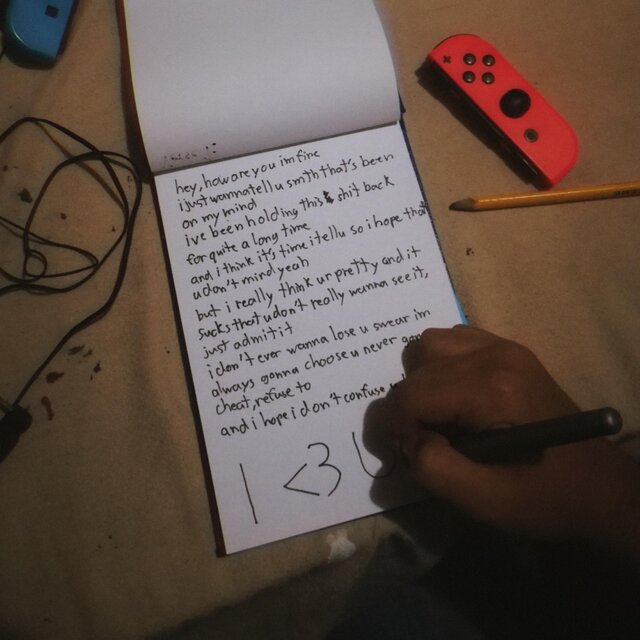 hey, how are you im fine
i just wanna tell u smth that's been
on my mind
ive been holding this shit back
for quite a long time
and i think it's time i tell u so i hope that
u don't mind yeah
but i really think ur pretty and it
sucks that u don't really wanna see it,
just admit it
i don't ever wanna lose u swear im
always gonna choose u never
cheat, refuse to
and i hope i don't confuse
I <3 U